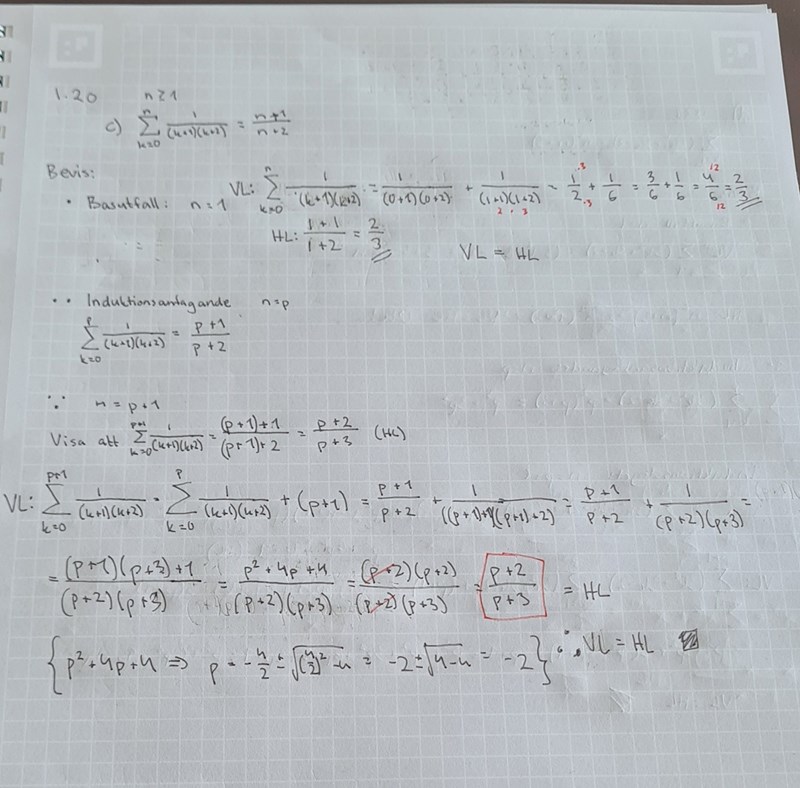 1.20 n≥1
c) ∑_{k=0}^{n} 1/((k+1)(k+2)) = (n+1)/(n+2)
Bevis:
• Basutfall: n=1 VL: ∑_{k=0}^{n} 1/((k+1)(k+2)) = 1/((0+1)(0+2)) + 1/((1+1)(1+2)) = 1/2 + 1/6 = 3/6 + 1/6 = 4/6 = 2/3
HL: (1+1)/(1+2) = 2/3 VL = HL
•• Induktionsantagande n=p
∑_{k=0}^{p} 1/((k+1)(k+2)) = (p+1)/(p+2)
∵ n = p+1
Visa att ∑_{k=0}^{p+1} 1/((k+1)(k+2)) = ((p+1)+1)/((p+1)+2) = (p+2)/(p+3) (HL)
VL: ∑_{k=0}^{p+1} 1/((k+1)(k+2)) = ∑_{k=0}^{p} 1/((k+1)(k+2)) + (p+1) = (p+1)/(p+2) + 1/(((p+1)+1)((p+1)+2)) = (p+1)/(p+2) + 1/((p+2)(p+3)) =
= ((p+1)(p+3)+1)/((p+2)(p+3)) = (p²+4p+4)/((p+2)(p+3)) = ((p+2)(p+2))/((p+2)(p+3)) = (p+2)/(p+3) = HL
{p²+4p+4 ⇒ p = -4/2 ± √((4/2)²-4) = -2±√(4-4) = -2} ∴ VL = HL